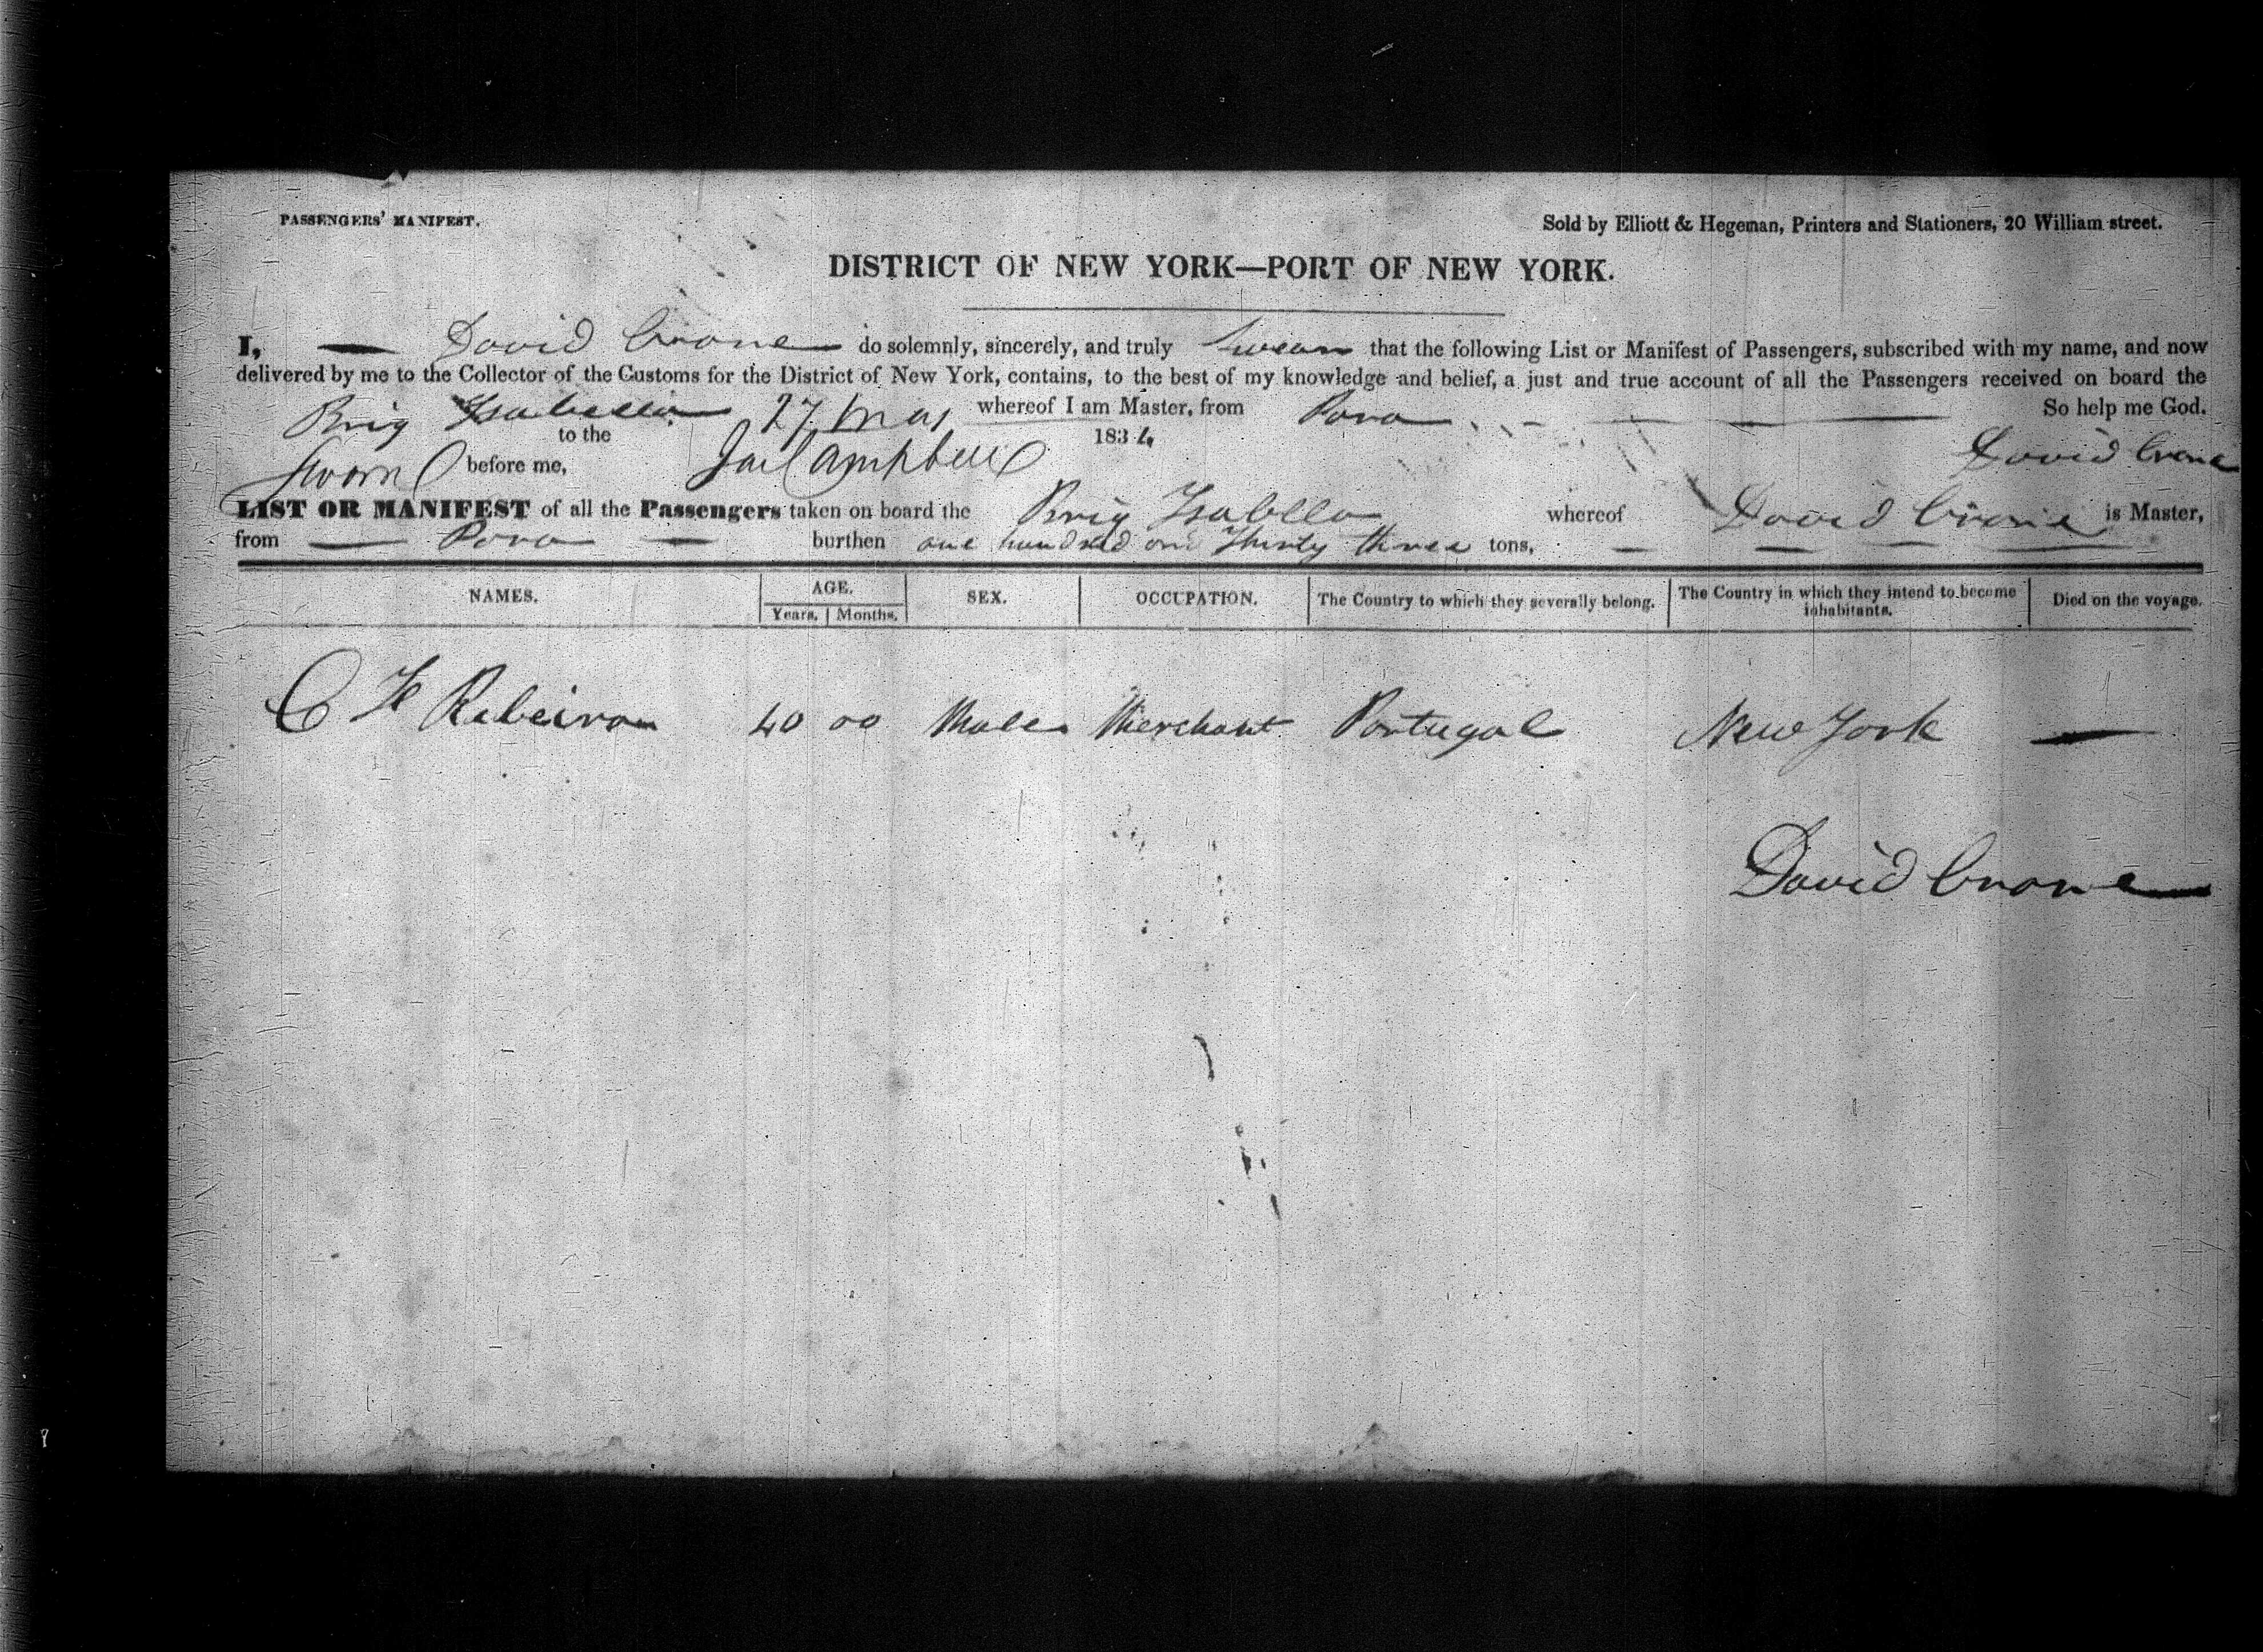 PASSENGERS' MANIFEST.
Sold by Elliott & Hegeman, Printers and Stationers, 20 William street.
DISTRICT OF NEW YORK—PORT OF NEW YORK.
I, — David Crane do solemnly, sincerely, and truly Swear that the following List or Manifest of Passengers, subscribed with my name, and now
delivered by me to the Collector of the Customs for the District of New York, contains, to the best of my knowledge and belief, a just and true account of all the Passengers received on board the
Brig Isabella whereof I am Master, from Para So help me God.
Sworn to the 27 May 1834
before me, Jas Campbell David Crane
LIST OR MANIFEST of all the Passengers taken on board the Brig Isabella whereof David Crane is Master,
from — Para — burthen one hundred and Thirty three tons,
NAMES. AGE. SEX. OCCUPATION. The Country to which they severally belong. The Country in which they intend to become inhabitants. Died on the voyage.
Years. Months.
C F Rebeiro 40 00 Male Merchant Portugal New York —
David Crane